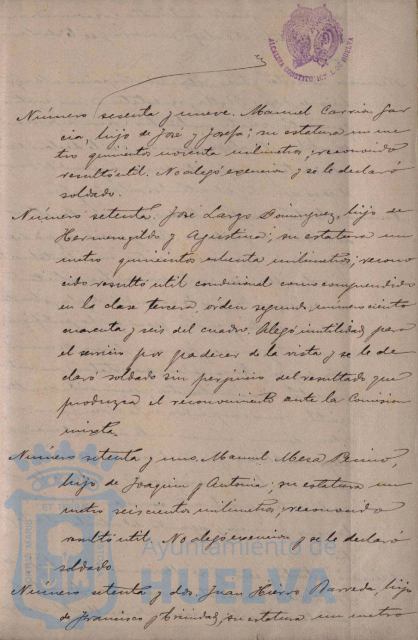 Número sesenta y nueve. Manuel Carria Gar-
cia, hijo de José y Josefa; su estatura un me-
tro quinientos noventa milimetros; reconocido
resultó util. No alegó exencion y se le declaró
soldado.
Número setenta. José Largo Dominguez, hijo de
Hermenegildo y Agustina; su estatura un
metro quinientos ochenta milimetros; recono-
cido resultó util condicional como comprendido
en la clase tercera, órden segundo, número ciento
cuarenta y seis del cuadro. Alegó inutilidad para
el servicio por padecer de la vista y se le de-
claró soldado sin perjuicio del resultado que
produzca el reconocimiento ante la Comision
mixta.
Número setenta y uno. Manuel Mesa
hijo de Joaquin y Antonia; su estatura un
metro seiscientos milimetros; reconocido
resultó util. No alegó exencion y se le declaró
soldado.
Número setenta y dos. Juan Hierro Barreda, hijo
de Francisco y Trinidad; su estatura un metro
Ayuntamiento de
HUELVA